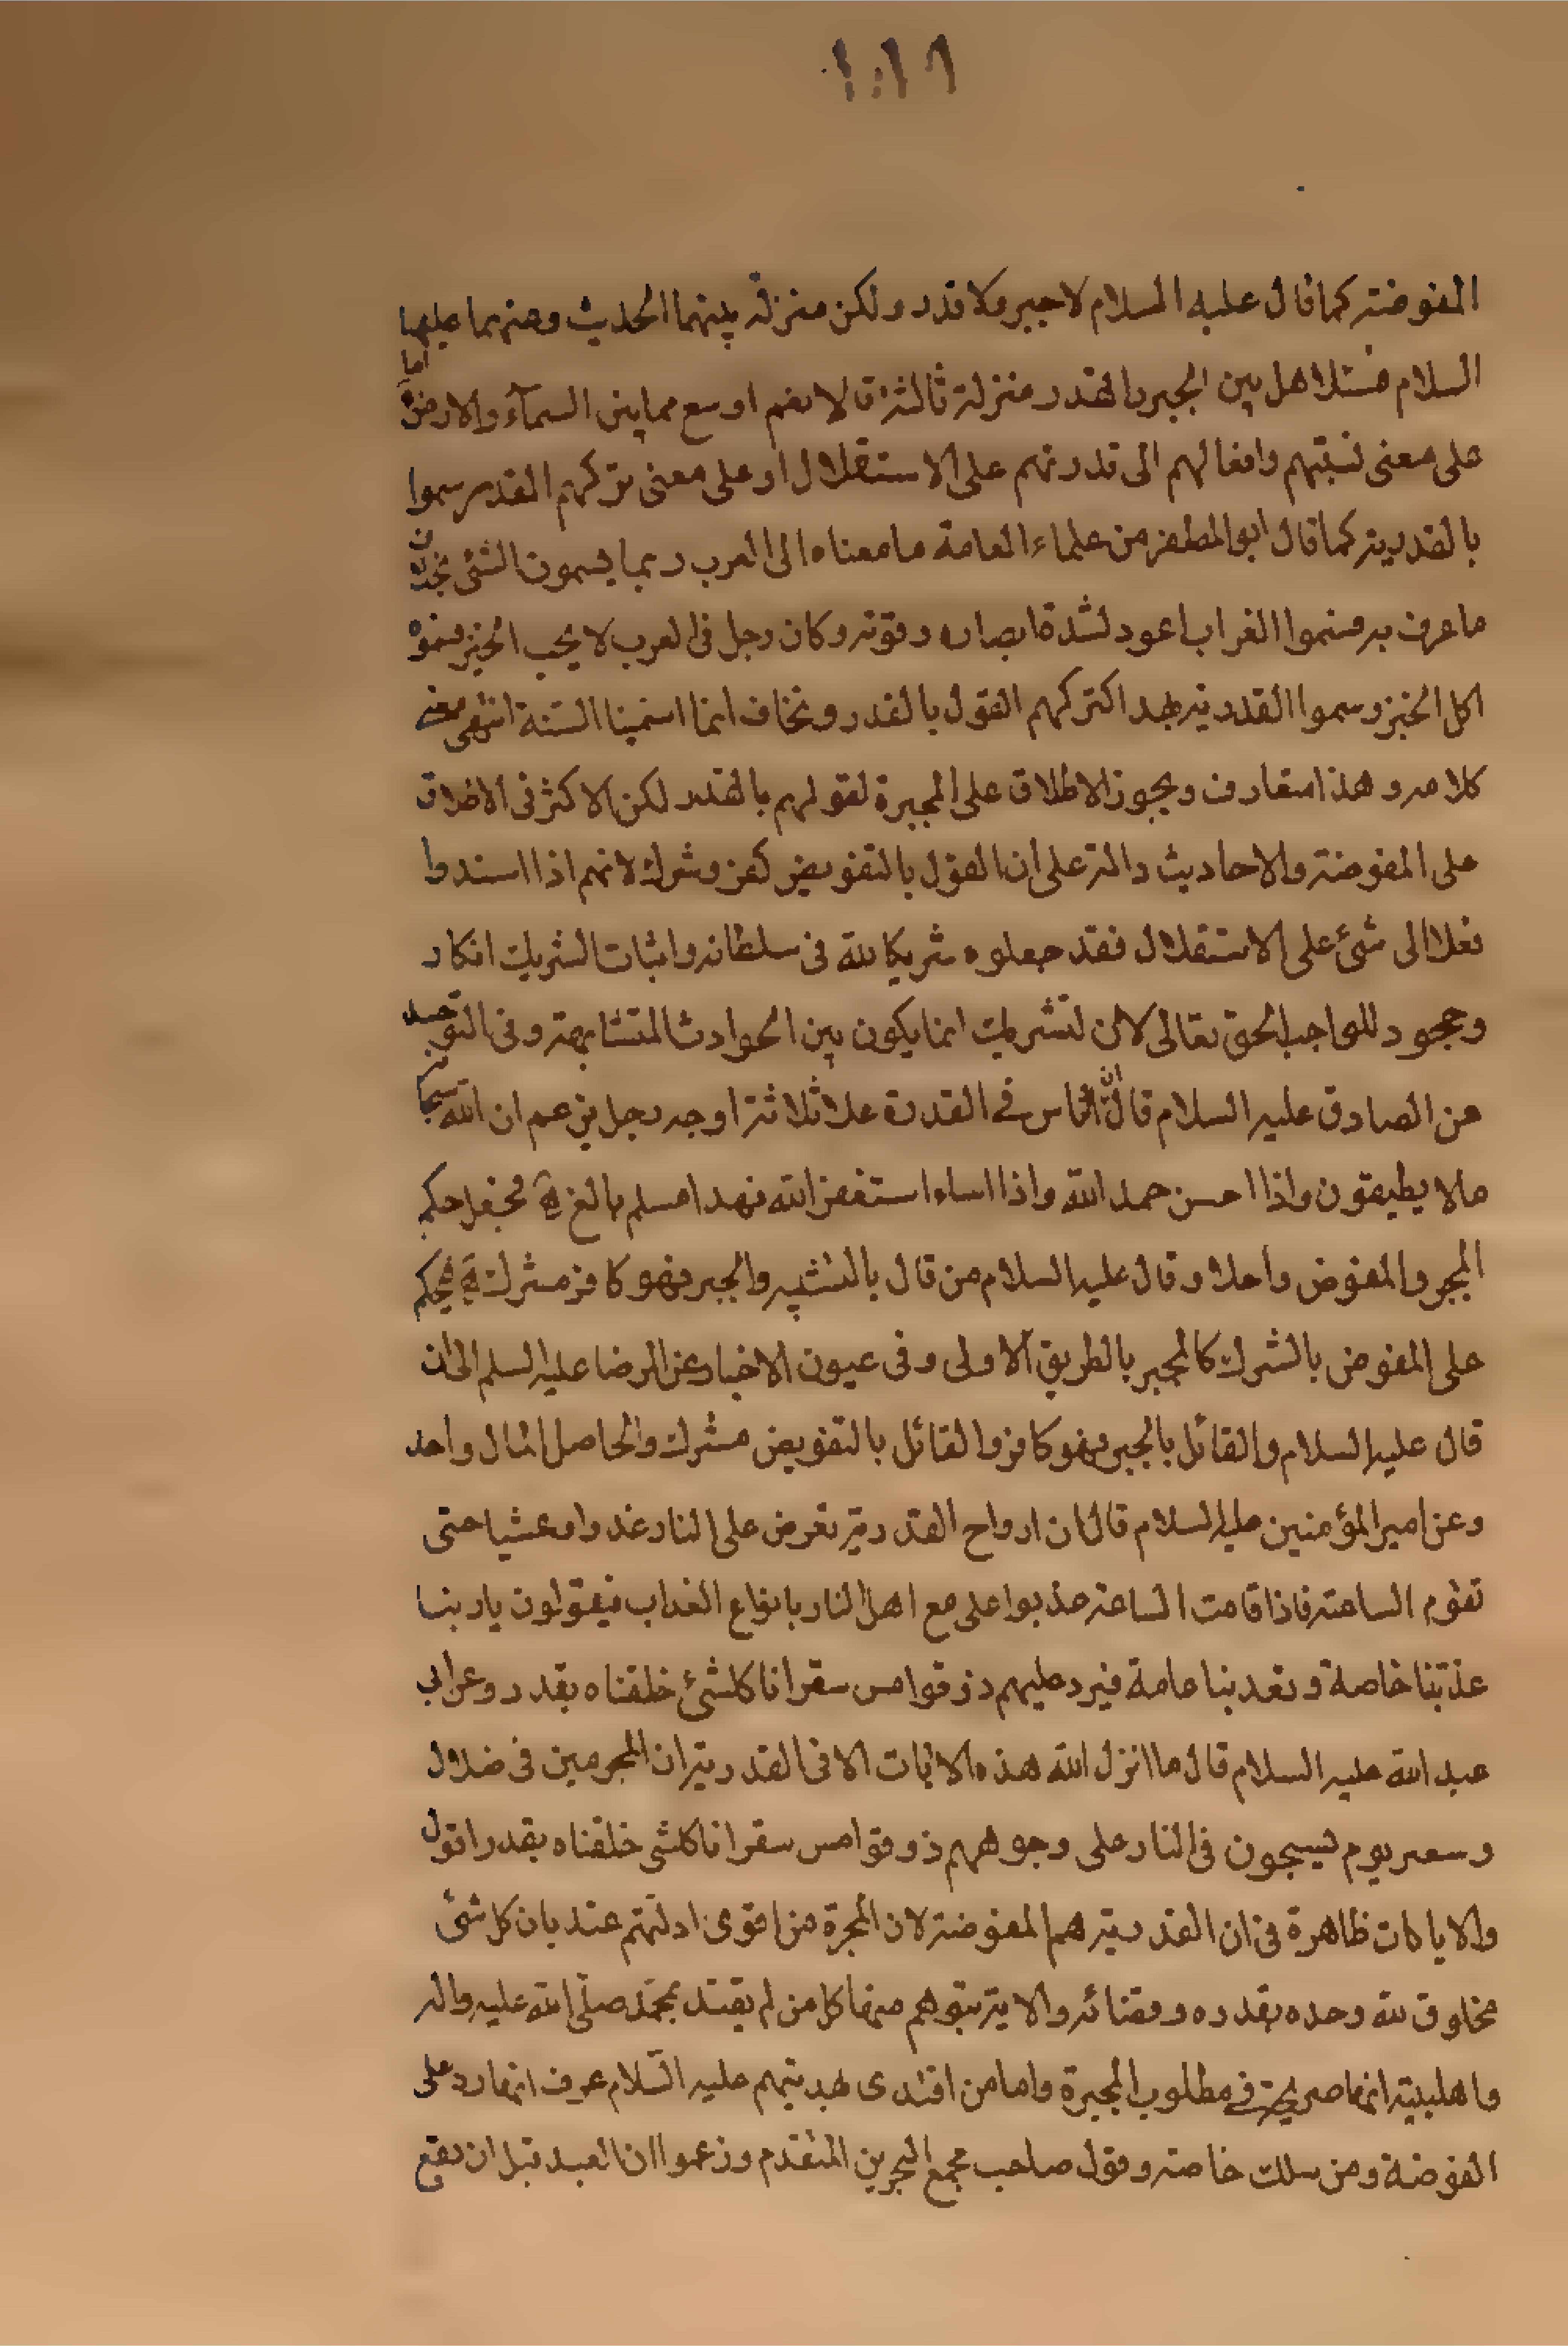 المفوضة كما قال عليه السلام لا جبر ولا قدر ولكن منزلة بينهما الحديث وعنهما عليهما
السلام فسئلا هل بين الجبر والقدر منزلة ثالثة قالا نعم اوسع مما بين السمآء والارض اما
على معنى نسبتهم وافعالهم الى قدرتهم على الاستقلال او على معنى تركهم القدر سموا
بالقدرية كما قال ابوالمظفر من علماء العامة ما معناه الى العرب ربما يسمون الشئ بخلاف
ما عرف به فسموا الغراب اعور لشدة ابصاره وقوته وكان رجل في العرب لا يحب الخبز فسموه
اكل الخبز وسموا القدرية بهذا لتركهم القول بالقدر ونخاف انما اسمينا السنة انتهى معنى
كلامه وهذا متعارف ويجوز الاطلاق على المجبرة لقولهم بالقدر لكن الاكثر في الاطلاق
على المفوضة والاحاديث دالة على ان القول بالتفويض كفر وشرك لانهم اذا اسندوا
فعلا الى شئ على الاستقلال فقد جعلوه شريكا لله في سلطانه واثبات الشريك انكار
وجحود للواجب الحق تعالى لان لتشريك انما يكون بين الحوادث المتشابهة وفي التوحيد
عن الصادق عليه السلام قال ان الناس في القدرة علا ثلاثة اوجه رجل يزعم ان الله
ما لا يطيقون واذا احسن حمد الله واذا اساء استغفر الله فهذا مسلم بالغ فجعل حكم
المجبر والمفوض واحدا وقال عليه السلام من قال بالتشبيه والجبر فهو كافر مشرك فيحكم
على المفوض بالشرك كالمجبر بالطريق الاولى وفي عيون الاخبار عن الرضا عليه السلم الى ان
قال عليه السلام والقائل بالجبر فهو كافر والقائل بالتفويض مشرك والحاصل المال واحد
وعن امير المؤمنين عليه السلام قال ان ارواح القدرية تعرض على النار غدوا وعشيا حتى
تقوم الساعة فاذا قامت الساعة عذبوا على مع اهل النار بانواع العذاب فيقولون يا ربنا
عذبتنا خاصة وتعذبنا عامة فيرد عليهم ذوقوا مس سقر انا كلشئ خلقناه بقدر وعن ابي
عبد الله عليه السلام قال ما انزل الله هذه الايات الا في القدرية ان المجرمين في ضلال
وسعر يوم يسبحون في النار على وجوههم ذوقوا مس سقر انا كلشى خلقناه بقدر اقول
والايات ظاهرة في ان القدرية هم المفوضة لان المجبرة من اقوى ادلتهم عند بان كل شئ
مخلوق لله وحده بقدره وقضائه والاية يتوهم منها كل من لم يقتد بمحمد صلى الله عليه واله
واهلبيته انها صريحة في مطلوب المجبرة واما من اقتدى بهديهم عليه السلام عرف انها رد على
المفوضة ومن سلك خاصة وقول صاحب مجمع البحرين المتقدم وزعموا ان العبد قبل ان يقع